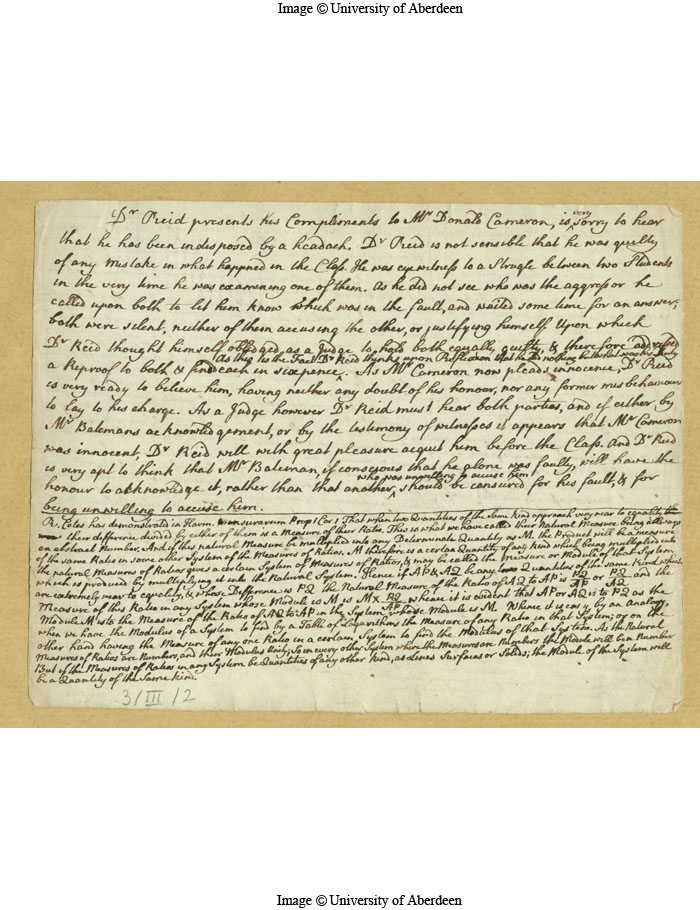 Image © University of Aberdeen
Dr Reid presents his Compliments to Mr Donald Cameron, is very sorry to hear
that he has been indesposed by a headach. Dr Reid is not sensible that he was guilty
of any mistake in what happned in the Class. He was eyewitness to a Strugle between two Students
in the very time he was examining one of them. As he did not see who was the aggressor he
called upon both to let him know which was in the fault, and waited some time for an answer;
both were silent, neither of them accusing the other, or justifying himself. Upon which
Dr Reid thought himself obliged, as a Judge to, hold both equally guilty, & therefore addressed
As this is the Fact Dr Reid thinks upon Reflection that he did nothing but what was his Duty
a Reproof to both & fined each in sixpence. As Mr Cameron now pleads innocence, Dr Reid
is very ready to believe him, having neither any doubt of his honour, nor any former misbehaviour
to lay to his charge. As a Judge however Dr Reid must hear both parties, and if either by
Mr Batemans acknowledgement, or by the testimony of witnesses it appears that Mr Cameron
was innocent, Dr Reid will with great pleasure acquit him before the Class. And Dr Reid
is very apt to think that Mr Bateman, if conscious that he alone was faulty, will have the
who was unwilling to accuse him
honour to acknowledge it, rather than that another, should be censured for his fault, & for
being unwilling to accuse him.
Mr. Cotes has demonstrated in Harm. mensurarum Prop 1 Cor 1 That when two Quantities of the Same kind approach very near to equality
their difference divided by either of them is a Measure of their Ratio. This is what we have called their Natural Measure being allways
an abstract Number. And if this natural Measure be multiplied into any Determinate Quantity as M, the Product will be a measure
of the same Ratio in some other System of the Measures of Ratios. M therefore is a certain Quantity of any kind which being multiplied into
the natural Measures of Ratios gives a certain System of Measures of Ratios, & may be called the Measure or Module of that System,
which is produced by multiplying it into the Natural System. Hence if AP & AQ be any Quantities of the same kind which
are extremely near to equality, & whose Difference is PQ the Natural Measure of the Ratio of AQ to AP is PQ/AP or PQ/AQ and the
Measure of this Ratio in any System whose Module is M is M× PQ/AP whence it is evident that AP or AQ is to PQ as the
Module M is to the Measure of the Ratio of AQ to AP in the System whose Module is M. Whence it is easy by an analogy
when we have the Modulus of a System to find by a Table of Logarithms the Measure of any Ratio in that System; or on the
other hand having the Measure of any one Ratio in a certain System to find the Modulus of that System. As the Natural
Measures of Ratios are Numbers, and their Modulus Unity; So in every other System where the Measures are Numbers the Module will be a Number
But if the Measures of Ratios in any System be Quantities of any other kind, as Lines Surfaces or Solids; the Module of the System will
be a Quantity of the Same kind.
3/III/2
Image © University of Aberdeen